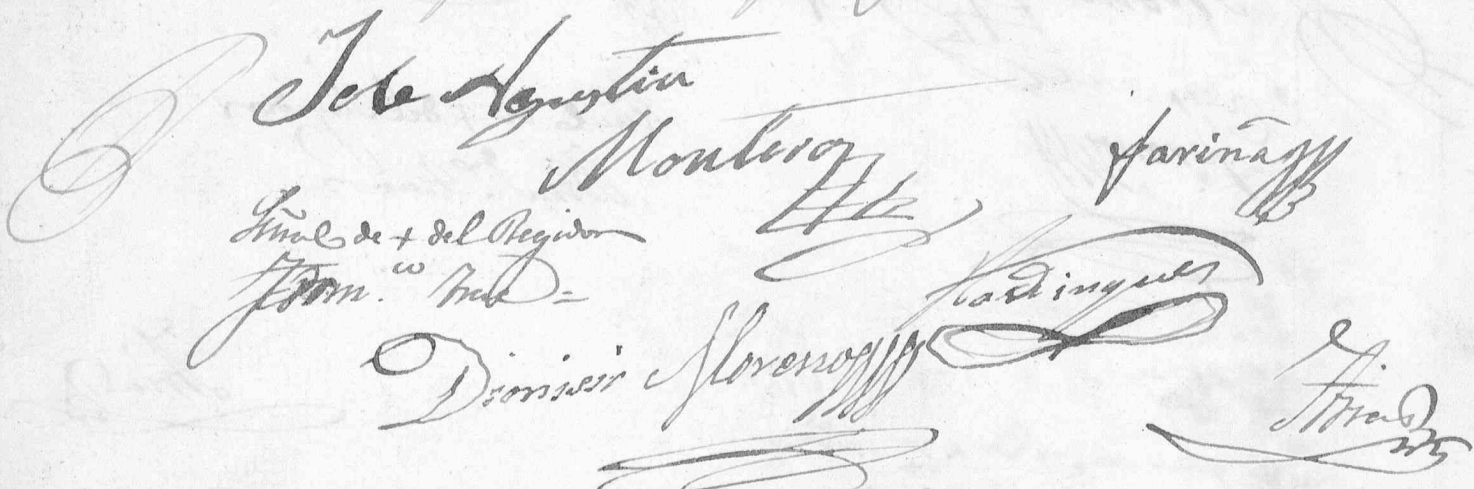 Jose Agustin
Montero
Fariña
Señal de + del Regidor
Fran.co
Dionisio Moreno